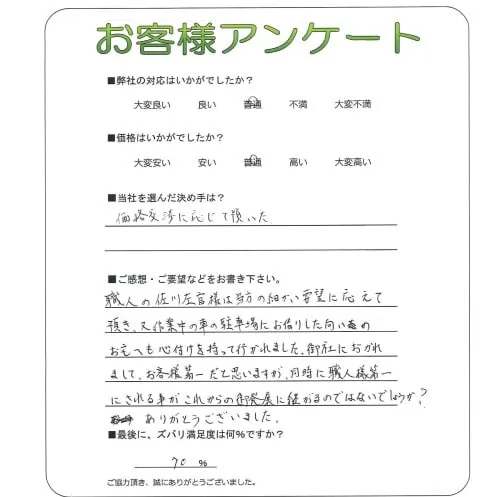 お客様アンケート
■弊社の対応はいかがでしたか？
大変良い 良い 普通 不満 大変不満
■価格はいかがでしたか？
大変安い 安い 普通 高い 大変高い
■当社を選んだ決め手は？
価格交渉に応じて頂いた
■ご感想・ご要望などをお書き下さい。
職人の佐川左官様は当方の細かい要望に応えて
頂き、又作業中の車の駐車場にお借りした向い奥の
お宅へも心付けを持って行かれました。御社におかれ
まして、お客様第一だと思いますが、同時に職人様第一
にされる事がこれからの御発展に継がるのではないでしょうか？
ありがとうございました。
■最後に、ズバリ満足度は何％ですか？
70 ％
ご協力頂き、誠にありがとうございました。